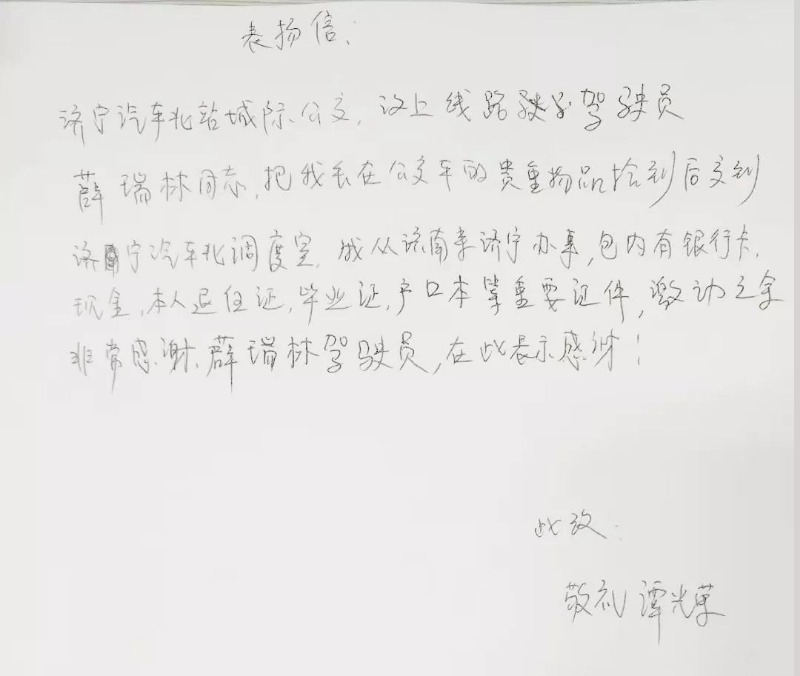 表扬信:
济宁汽车北站城际公交,汶上线路驾驶员
薛瑞林同志,把我丢在公交车的贵重物品捡到后交到
济宁汽车北调度室,我从济南来济宁办事,包内有银行卡,
现金,本人退伍证,毕业证,户口本等重要证件,激动之余
非常感谢薛瑞林驾驶员,在此表示感谢!
此致:
敬礼 谭光荣